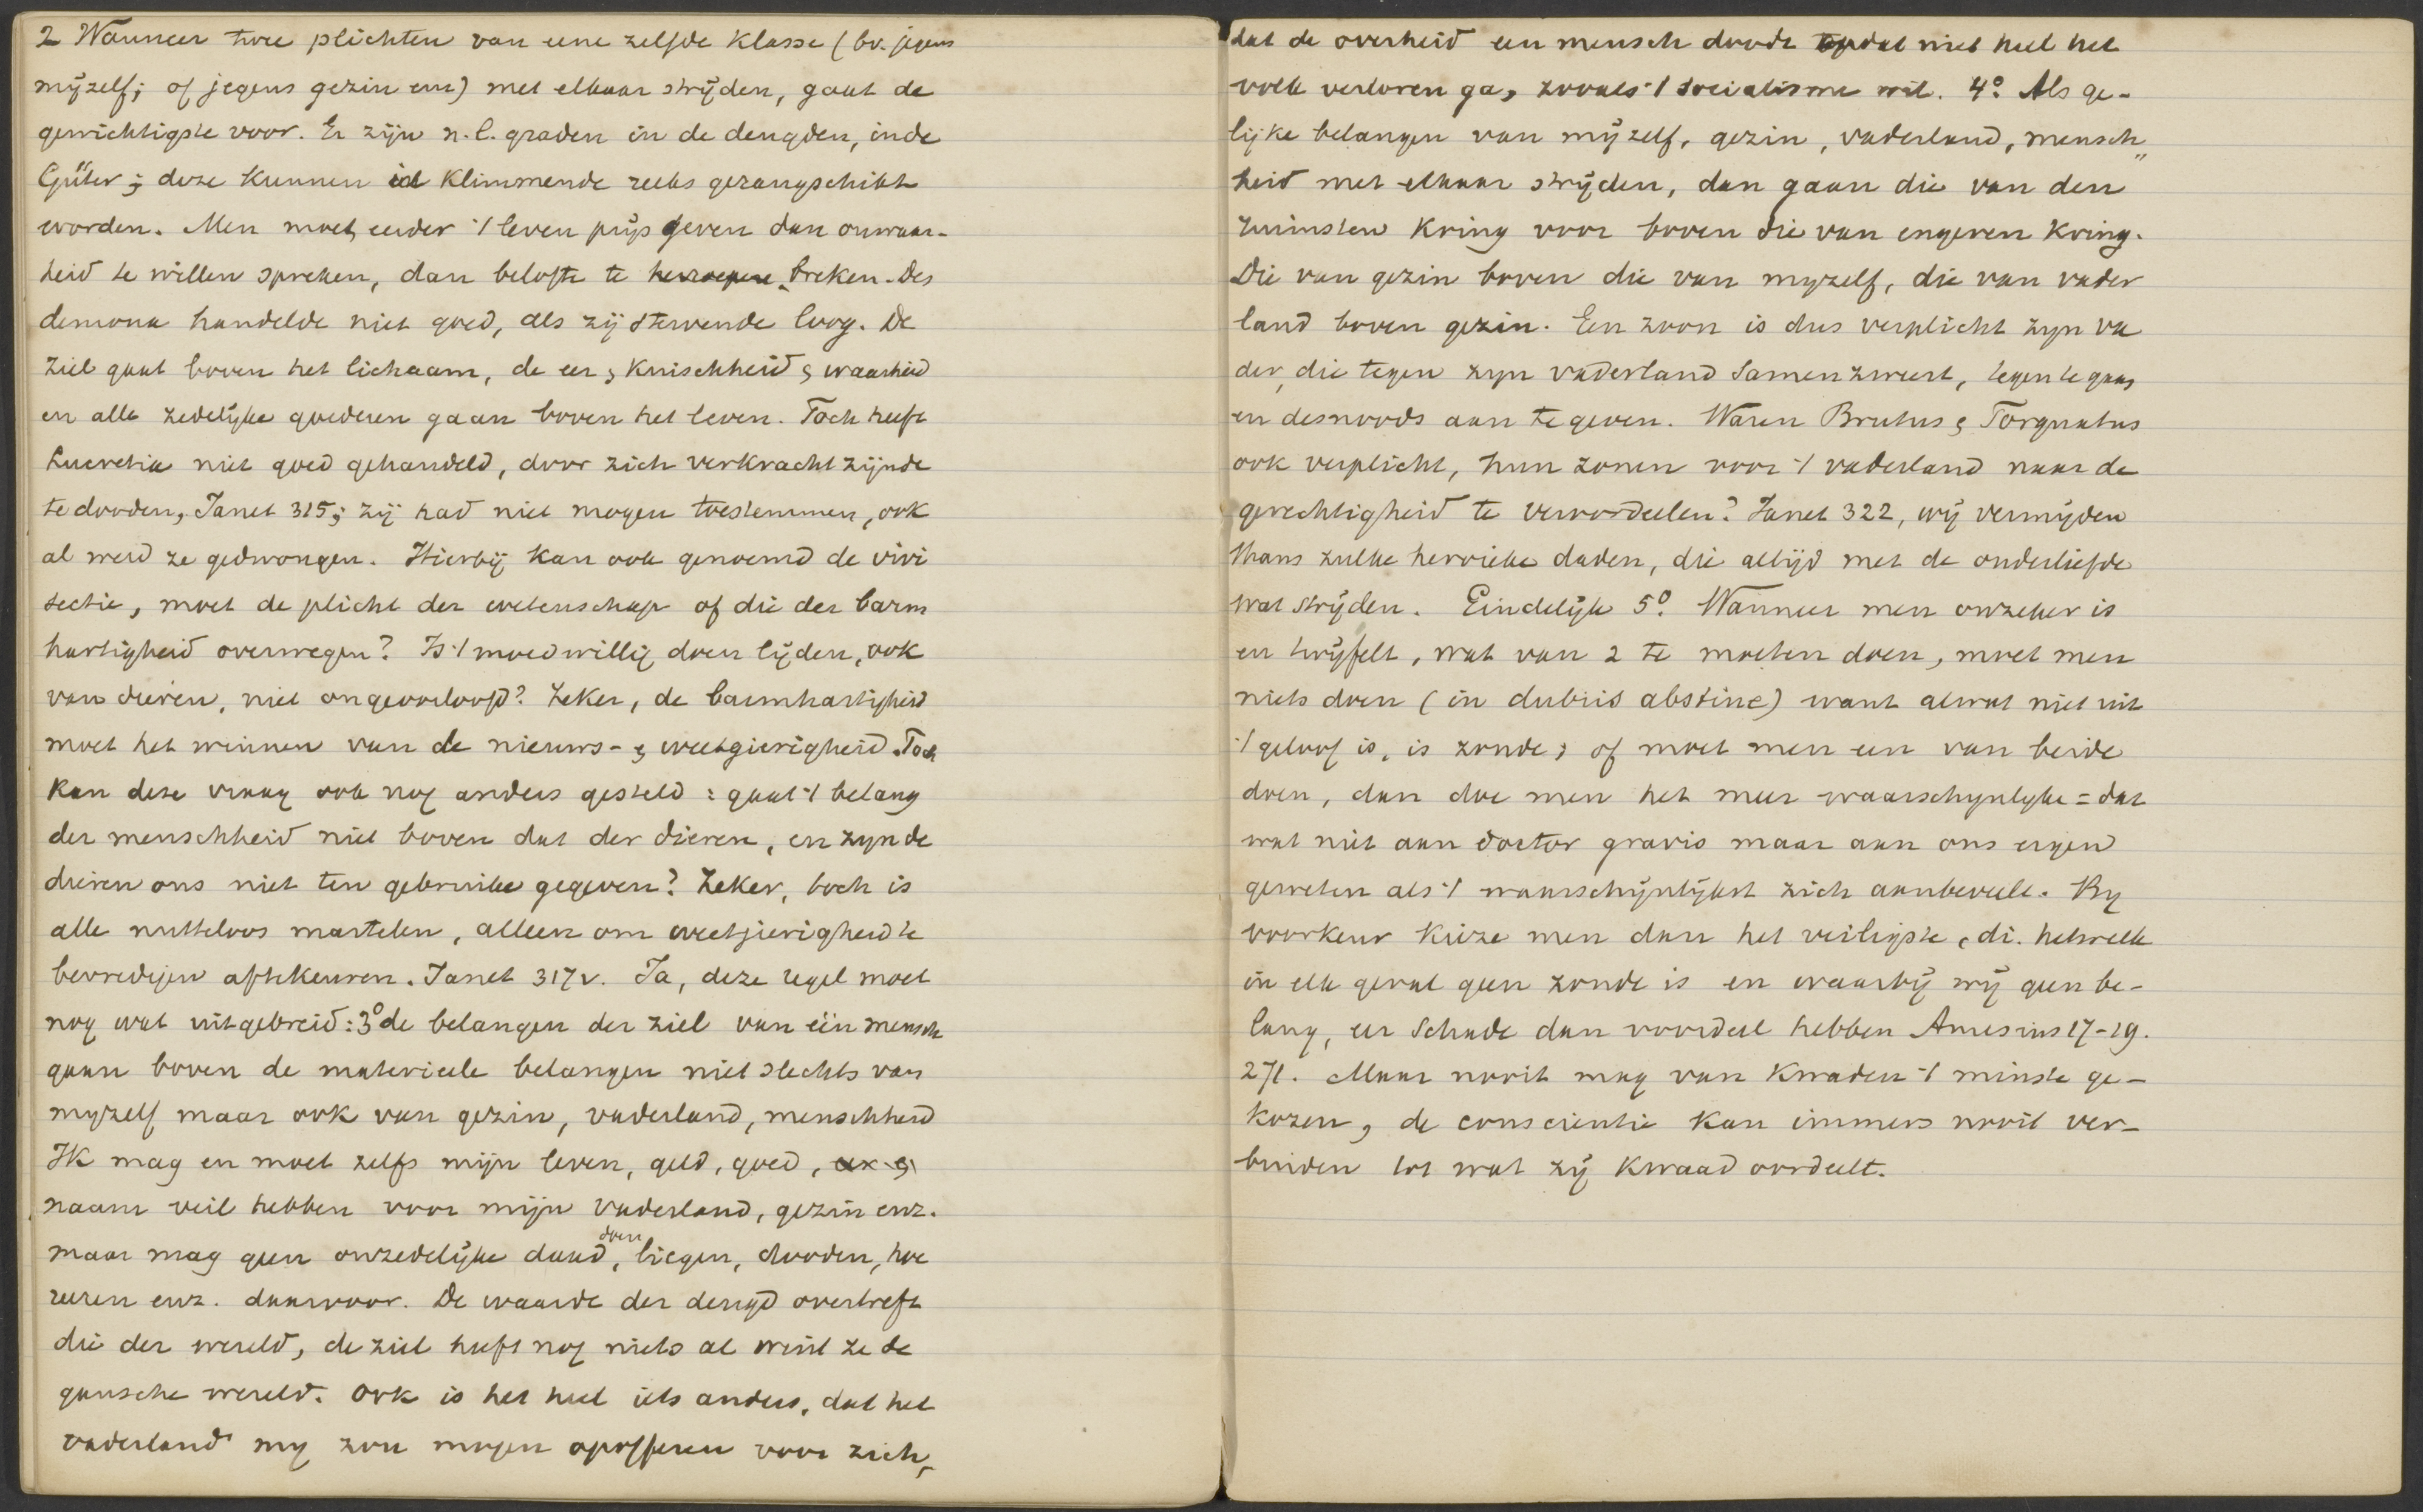 2 Wanneer twee plichten van eene zelfde klasse (bv. jegens
mijzelf; of jegens gezin enz) met elkaar strijden, gaat de
gewichtigste voor. Er zijn n.l. graden in de deugden, in de
Güter; deze kunnen in klimmende reeks gerangschikt
worden. Men moet eerder 't leven prijs geven dan onwaar-
heid te willen spreken, dan belofte te herroepen, breken. Des
demona handelde niet goed, als zij stervende loog. De
ziel gaat boven het lichaam, de eer, kuischheid, waarheid
en alle zedelijke goederen gaan boven het leven. Toch heeft
Lucretia niet goed gehandeld, door zich verkracht zijnde
te dooden, Janet 315; zij had niet mogen toestemmen, ook
al werd ze gedwongen. Hierbij kan ook genoemd de vivi
sectie, moet de plicht der wetenschap of die der barm
hartigheid overwegen? Is 't moedwillig doen lijden, ook
van dieren, niet ongeoorloofd? Zeker, de barmhartigheid
moet het winnen van de nieuws- & weetgierigheid. Toch
kan deze vraag ook nog anders gesteld: gaat 't belang
der menschheid niet boven dat der dieren, en zyn de
dieren ons niet ten gebruike gegeven? Zeker, toch is
alle nutteloos martelen, alleen om weetgierigheid te
bevredigen aftekeuren. Janet 317v. Ja, deze regel moet
nog wat uitgebreid: 3° de belangen der ziel van één mensch
gaan boven de materieele belangen niet slechts van
myzelf maar ook van gezin, vaderland, menschheid
Ik mag en moet zelfs mijn leven, geld, goed, eer &
naam veil hebben voor mijn vaderland, gezin enz.
maar mag geen onzedelijke daad doen, liegen, dooden, hoe
reeren enz. daarvoor. De waarde der deugd overtreft
die der wereld, de ziel heeft nog niets al wint ze de
gansche wereld. Ook is het heel iets anders, dat het
vaderland my zou mogen opofferen voor zich,
dat de overheid een mensch doodt opdat niet heel het
volk verloren ga, zooals 't socialisme wil. 4° Als ge-
lijke belangen van mijzelf, gezin, vaderland, mensch„
heid met elkaar strijden, dan gaan die van den
ruimsten kring voor boven die van engeren kring.
Die van gezin boven die van myzelf, die van vader
land boven gezin. Een zoon is dus verplicht zyn va
der, die tegen zyn vaderland samenzweert, tegen te gaan
en desnoods aan te geven. Waren Brutus & Torquatus
ook verplicht, hun zonen voor 't vaderland naar de
gerechtigheid te veroordeelen? Janet 322, wij vermijden
thans zulke heroieke daden, die altijd met de ouderliefde
wat strijden. Eindelijk 5° Wanneer men onzeker is
en twijfelt, wat van 2 te moeten doen, moet men
niets doen (in dubiis abstine) want alwat niet uit
't geloof is, is zonde; of moet men een van beide
doen, dan doe men het meer waarschynlyke = dat
wat niet aan doctor gravis maar aan ons eigen
geweten als 't waarschijnlijkst zich aanbeveelt. By
voorkeur kieze men dan het veiligste, di. hetwelk
in elk geval geen zonde is en waarbij wij geen be-
lang, eer schade dan voordeel hebben Amesius 17-19.
271. Maar nooit mag van kwaden 't minste ge-
kozen, de conscientie kan immers nooit ver-
binden tot wat zij kwaad oordeelt.